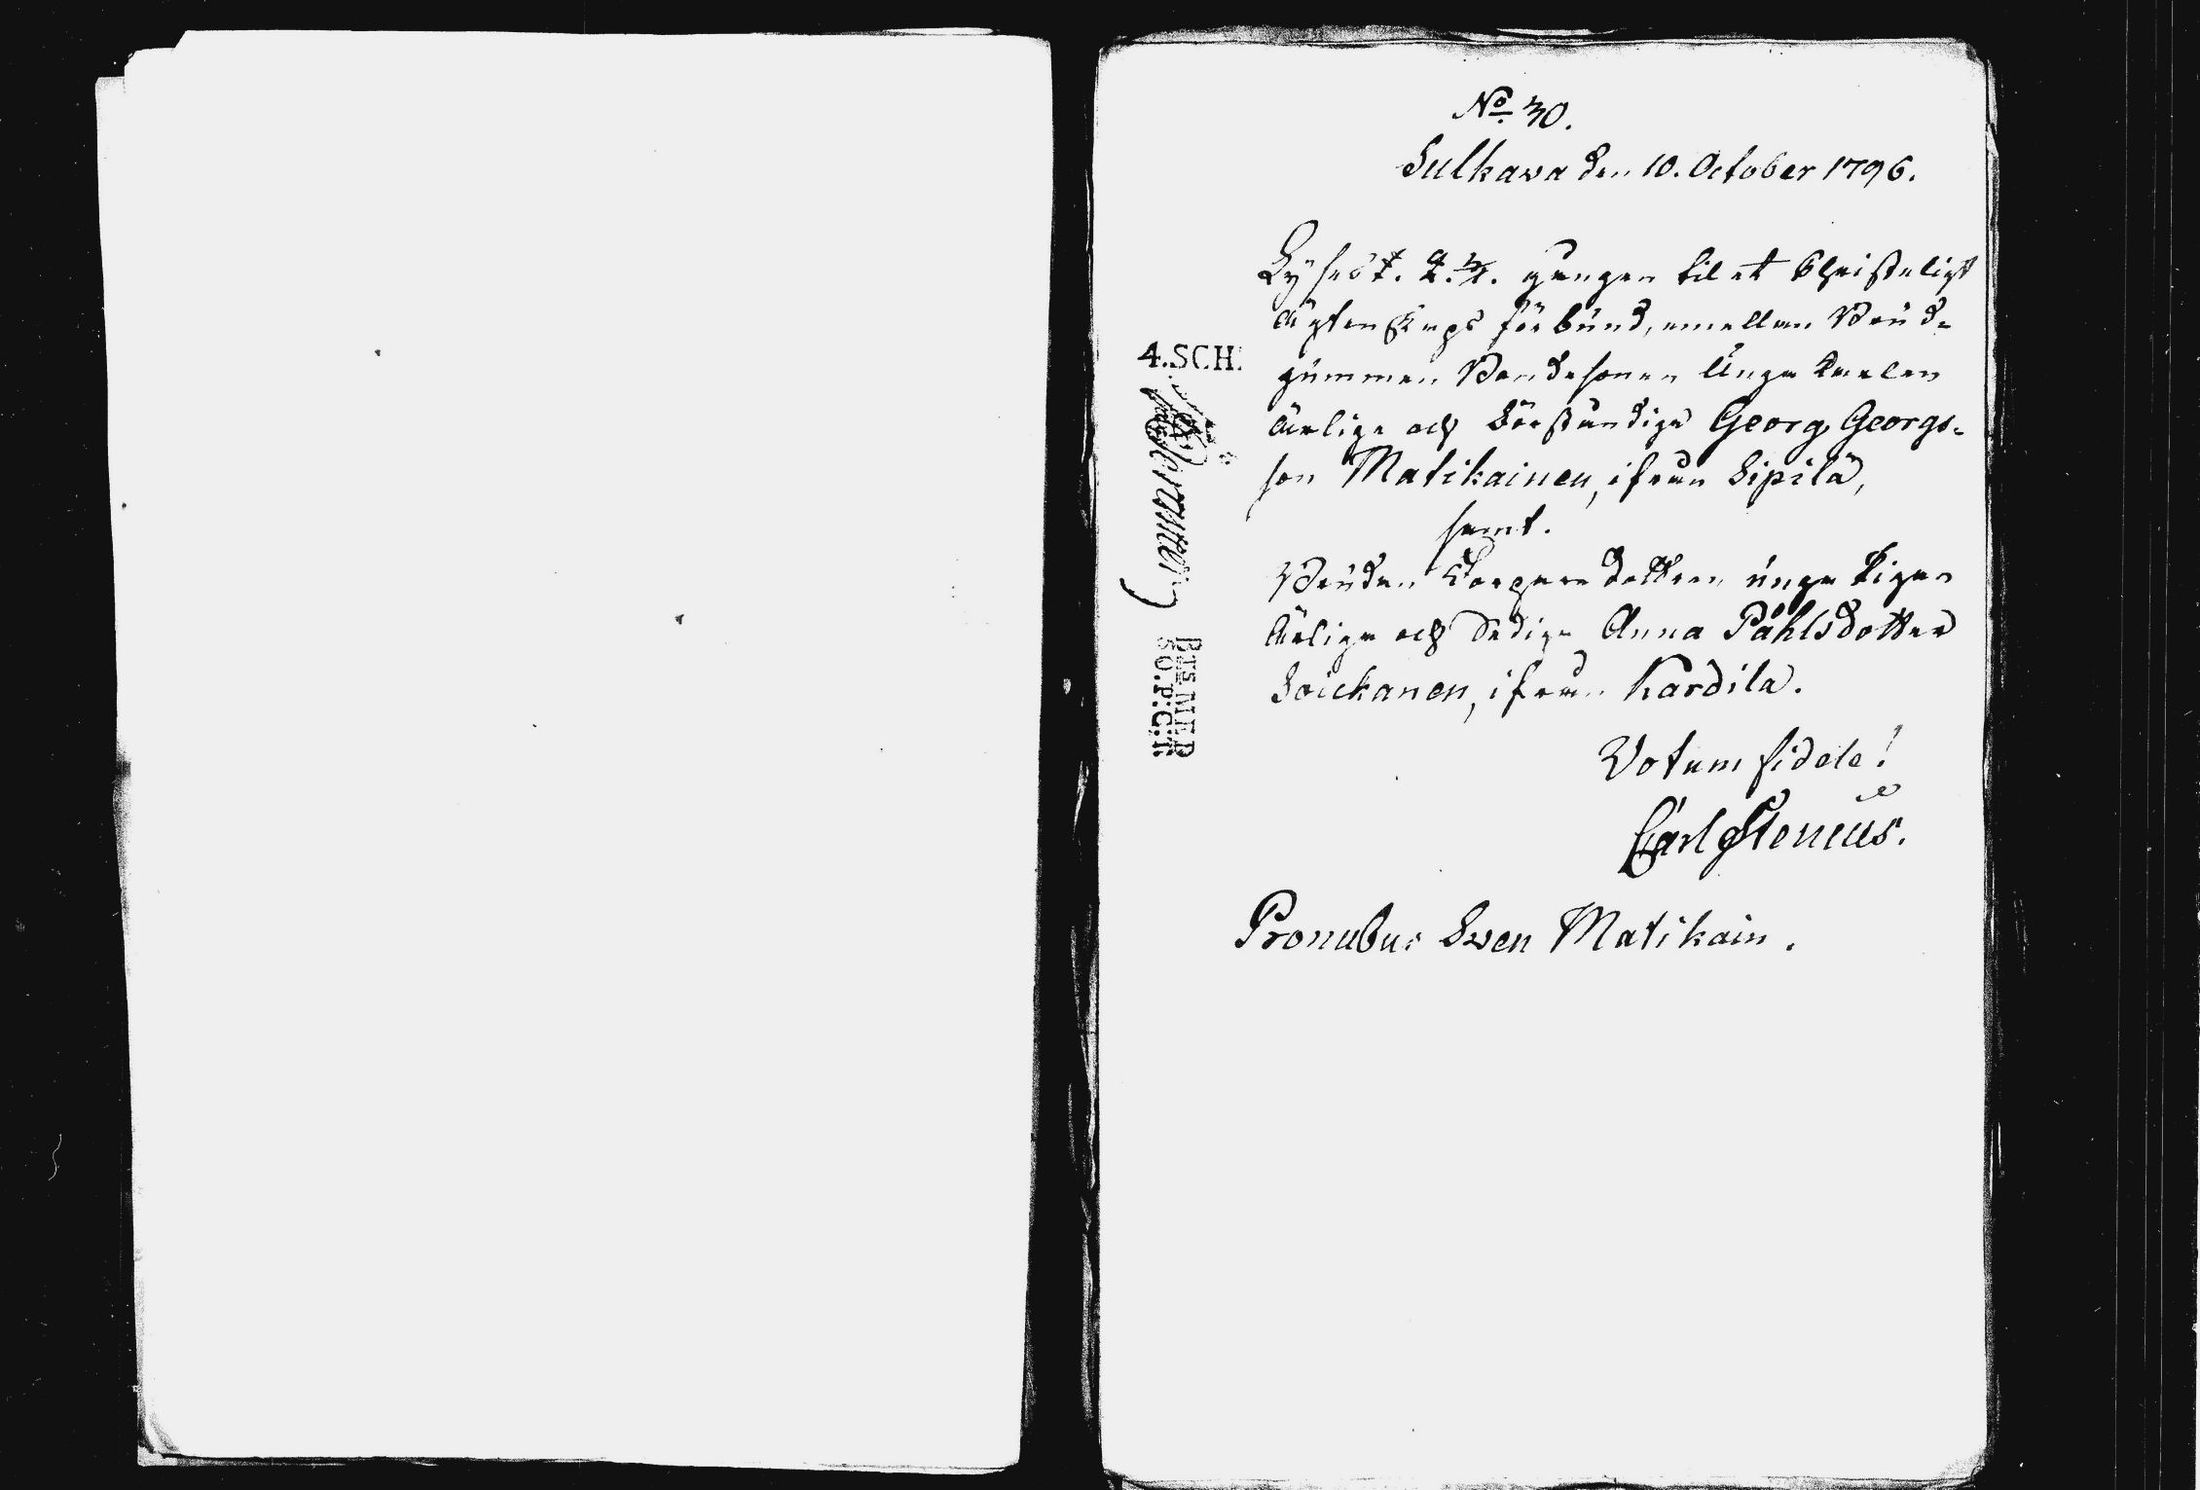 No 30.
Sulkava den 10. October 1796.
Lyses 1. 2. 3. gången til et Christeligt
ägtenskaps förbund, emellan Brud-
gummen Bondesonen Unge Karlen
ärlige och Förståndige Georg Georgs-
son Matikainen, ifrån Sipilä,
samt.
Bruden Torpare dottren unga Pigan
ärliga och Sediga Anna Påhlsdotter
Soickanen, ifrån Kardila.
Votum fidele!
Carl Stenius.
Pronubus Swen Matikain.
4.SCH.